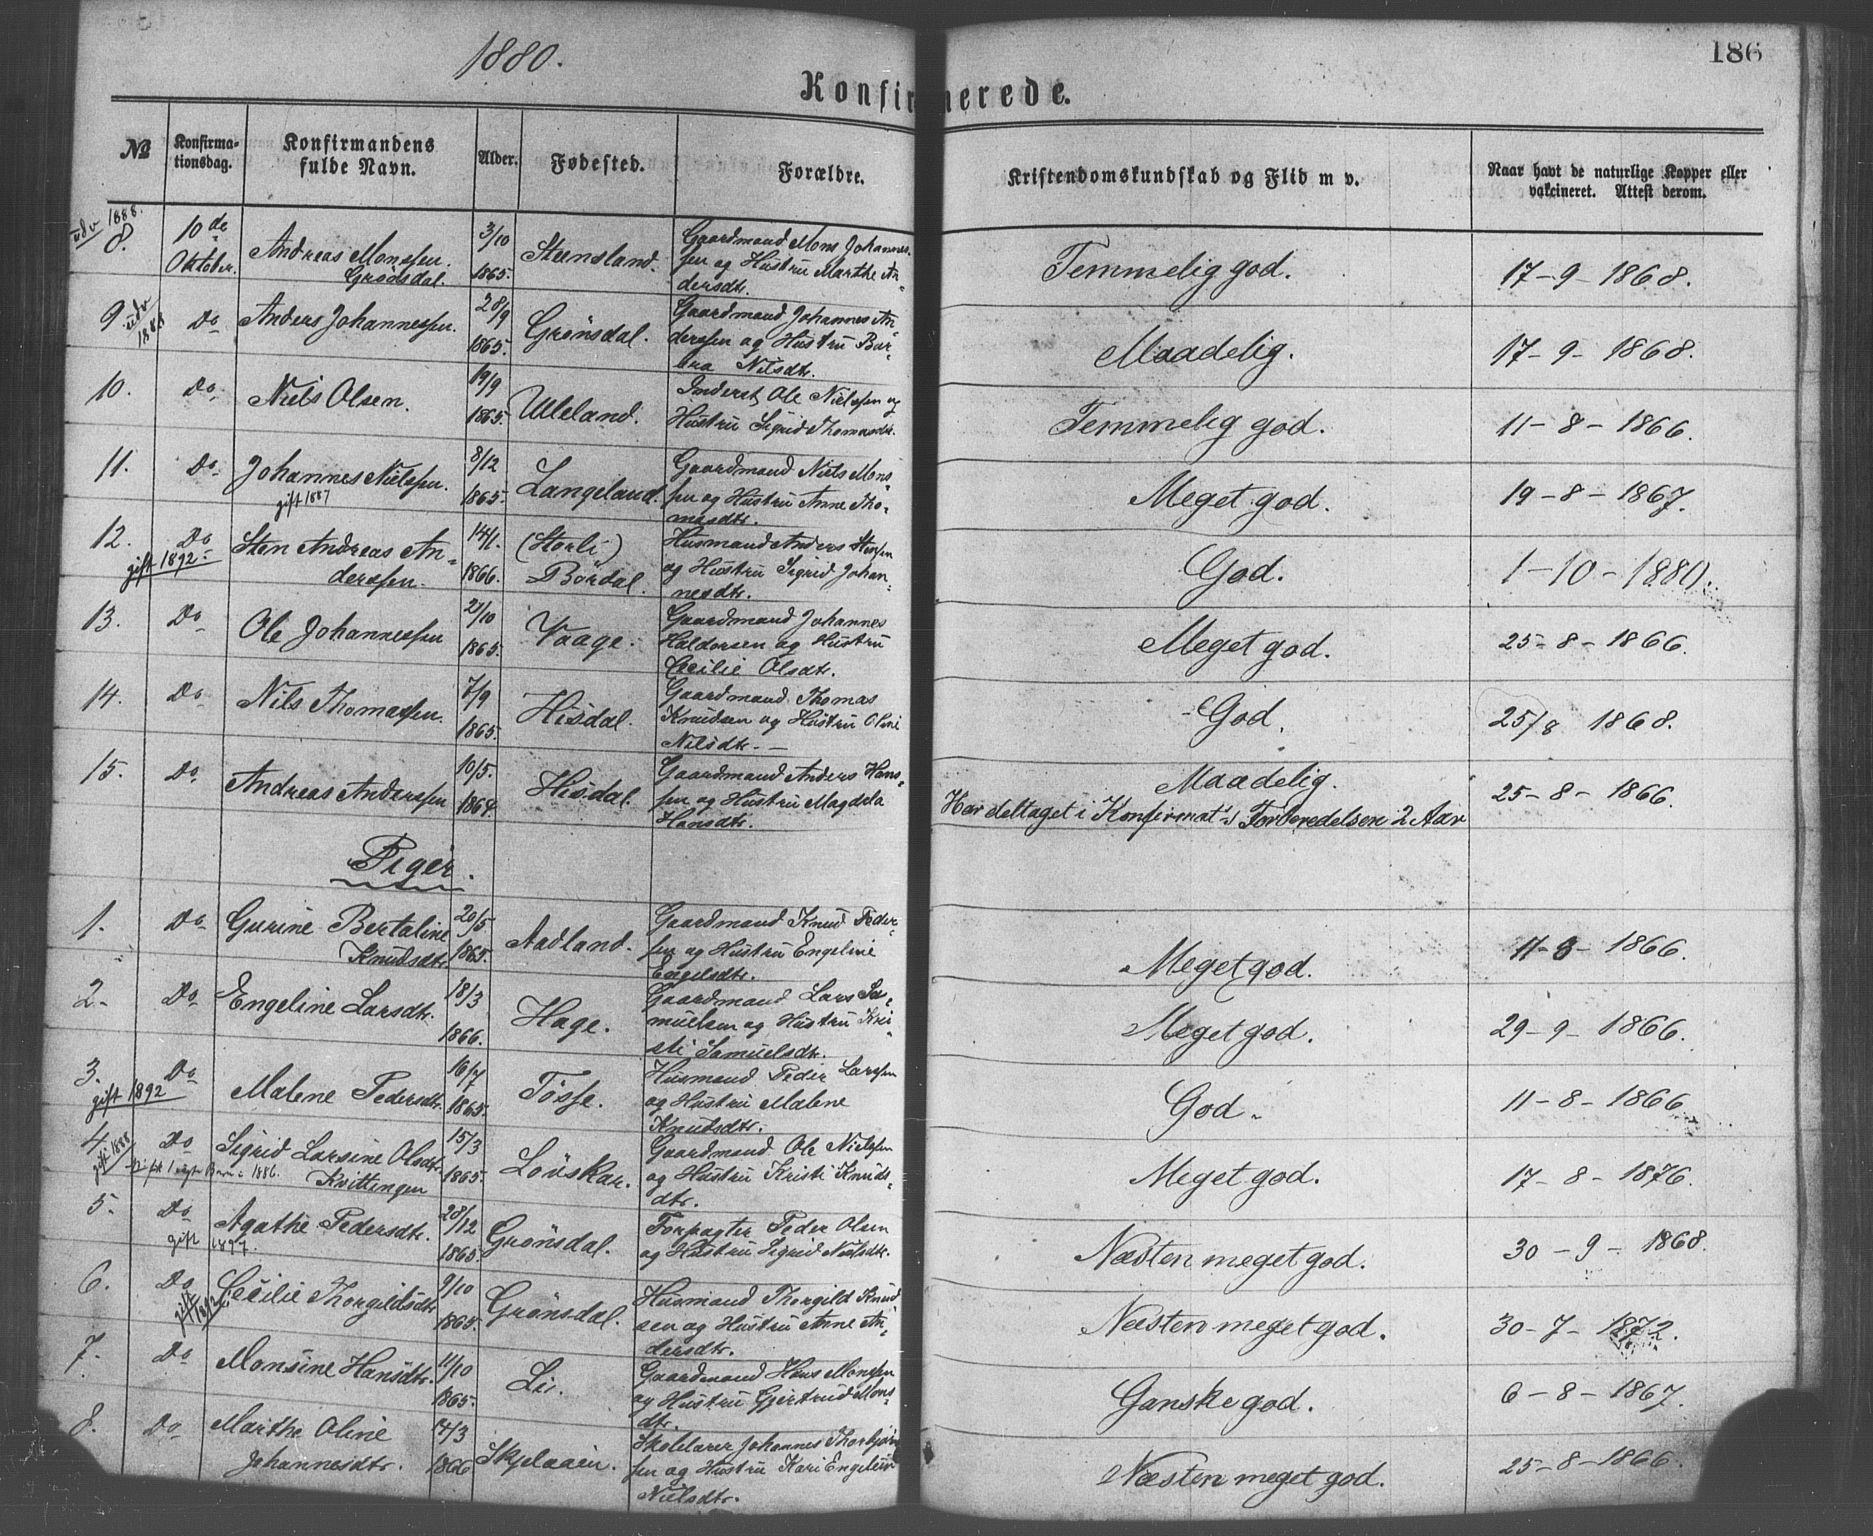 1880.
186
Konfirmerede.
№ Konfirma-tionsdag. Konfirmandens fulde Navn. Alder. Fødested. Forældre. Kristendomskundskab og Flid m v. Naar havt de naturlige Kopper eller vakcineret. Attest derom.
udv 1888.
8. 10de Oktober. Andreas Monssen Grödsdal. 3/10 1865. Steensland. Gaardmand Mons Johannes-
sen og Hustru Marthe An-
dersdtr. Temmelig god. 17-9-1868.
9 udv 1888 Do Anders Johannessen. 28/9 1865. Grönsdal. Gaardmand Johannes An-
derssen og Hustru Bar-
bra Nilsdtr. Maadelig. 17-9-1868.
10. Do Niels Olsen. 19/9 1865. Ulleland. Inderst Ole Nielssen og
Hustru Sigrid Thomasdtr. Temmelig god. 11-8-1866.
11. Do Johannes Nielssen. gift 1887 8/12 1865. Langeland. Gaardmand Niels Mons-
sen og Hustru Anne Tho-
masdtr. Meget god. 19-8-1867.
12. gift 1892 Do Sten Andreas An-
derssen. 14/1. 1866. (Storli) Bördal. Husmand Anders Stenssen
og Hustru Sigrid Johan-
nesdtr. God. 1-10-1880.
13. Do Ole Johannessen 2/10 1865. Vaage. Gaardmand Johannes
Haldorsen og Hustru
Cecilie Olsdtr. Meget god. 25-8-1866.
14. Do Nils Thomassen. 7/9 1865. Hisdal. Gaardmand Thomas
Knudsen og Hustru Oline
Nilsdtr. God. 25/8 1868.
15. Do Andreas Anderssen 10/5. 1864. Hisdal. Gaardmand Anders Hans-
sen og Hustru Magdela
Hansdtr. Maadelig.
Har deltaget i Konfirmat's Forberedelsen 2 Aar 25-8-1866.
Piger.
1. Do Gurine Bertaline
Knudsdtr 20/5 1865. Aadland. Gaardmand Knud Peder-
sen og Hustru Engeline
Engelsdtr. Meget god. 11-8-1866.
2. Do Engeline Larsdtr. 18/3 1866. Hage. Gaardmand Lars Sa-
muelsen og Hustru Kri-
sti Samuelsdtr. Meget god. 29-9-1866.
3. gift 1892 Do Malene Pedersdtr. 16/7 1865. Tösse. Husmand Peder Larssen
og Hustru Malene
Knutsdtr. God. 11-8-1866
4 gift 1888 Do Sigrid Larsine Olsdtr.
Kvittingen 15/3 1865. Löuskar. Gaardmand Ole Nielssen
og Hustru Kristi Knuds-
dtr. Meget god. 17-8-1876.
5. Do gift 1897. Agathe Pedersdtr. 28/12 1865. Grönsdal. Forpagter Peder Olsen
og Hustru Sigrid Nielsdtr. Næsten meget god. 30-9-1868.
6. Do gift 1892 Cecilie Thorgildsdtr 9/10 1865. Grönsdal. Husmand Thorgild Knud-
sen og Hustru Anne An-
dersdtr. Næsten meget god. 30-7-1872.
7. Do Monsine Hansdtr. 11/10 1865. Li. Gaardmand Hans Monssen
og Hustru Gjertrud Mons-
dtr. Ganske god. 6-8-1867.
8. Do Marthe Oline
Johannesdtr. 14/3 1866 Skjelaaen. Skolelærer Johannes Thorbjørn-
sen og Hustru Kari Engeline
Nielsdtr. Næsten meget god. 25-8-1866.